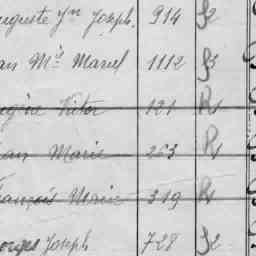 uguste Jn Joseph. 914 S2
an Mie Marcel 1112 S3
ugène Victor 121 R1
an Marie 263 R1
rançois Marie 319 R1
orges Joseph 728 S2